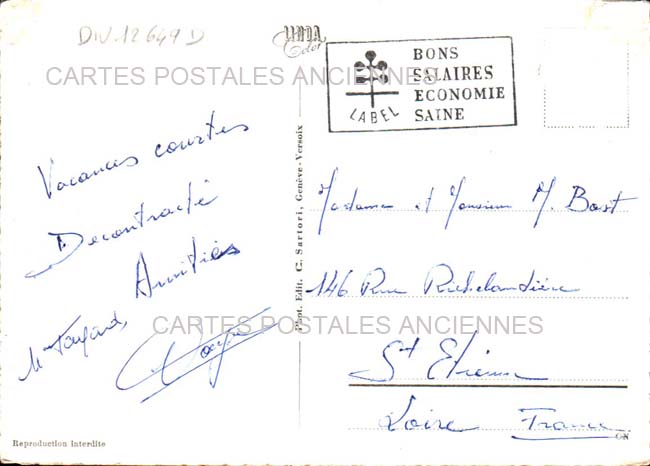 DIV.12649 D
LINDA
Color
BONS
SALAIRES
ECONOMIE
SAINE
LABEL
CARTES POSTALES ANCIENNES
Vacances courtes
Decontracté
Amitiés
Phot. Edit. C. Sartori, Genève-Versoix
Madame et Monsieur M. Bost
146 Rue Richelandière
St Etienne
Loire France
CARTES POSTALES ANCIENNES
Reproduction interdite